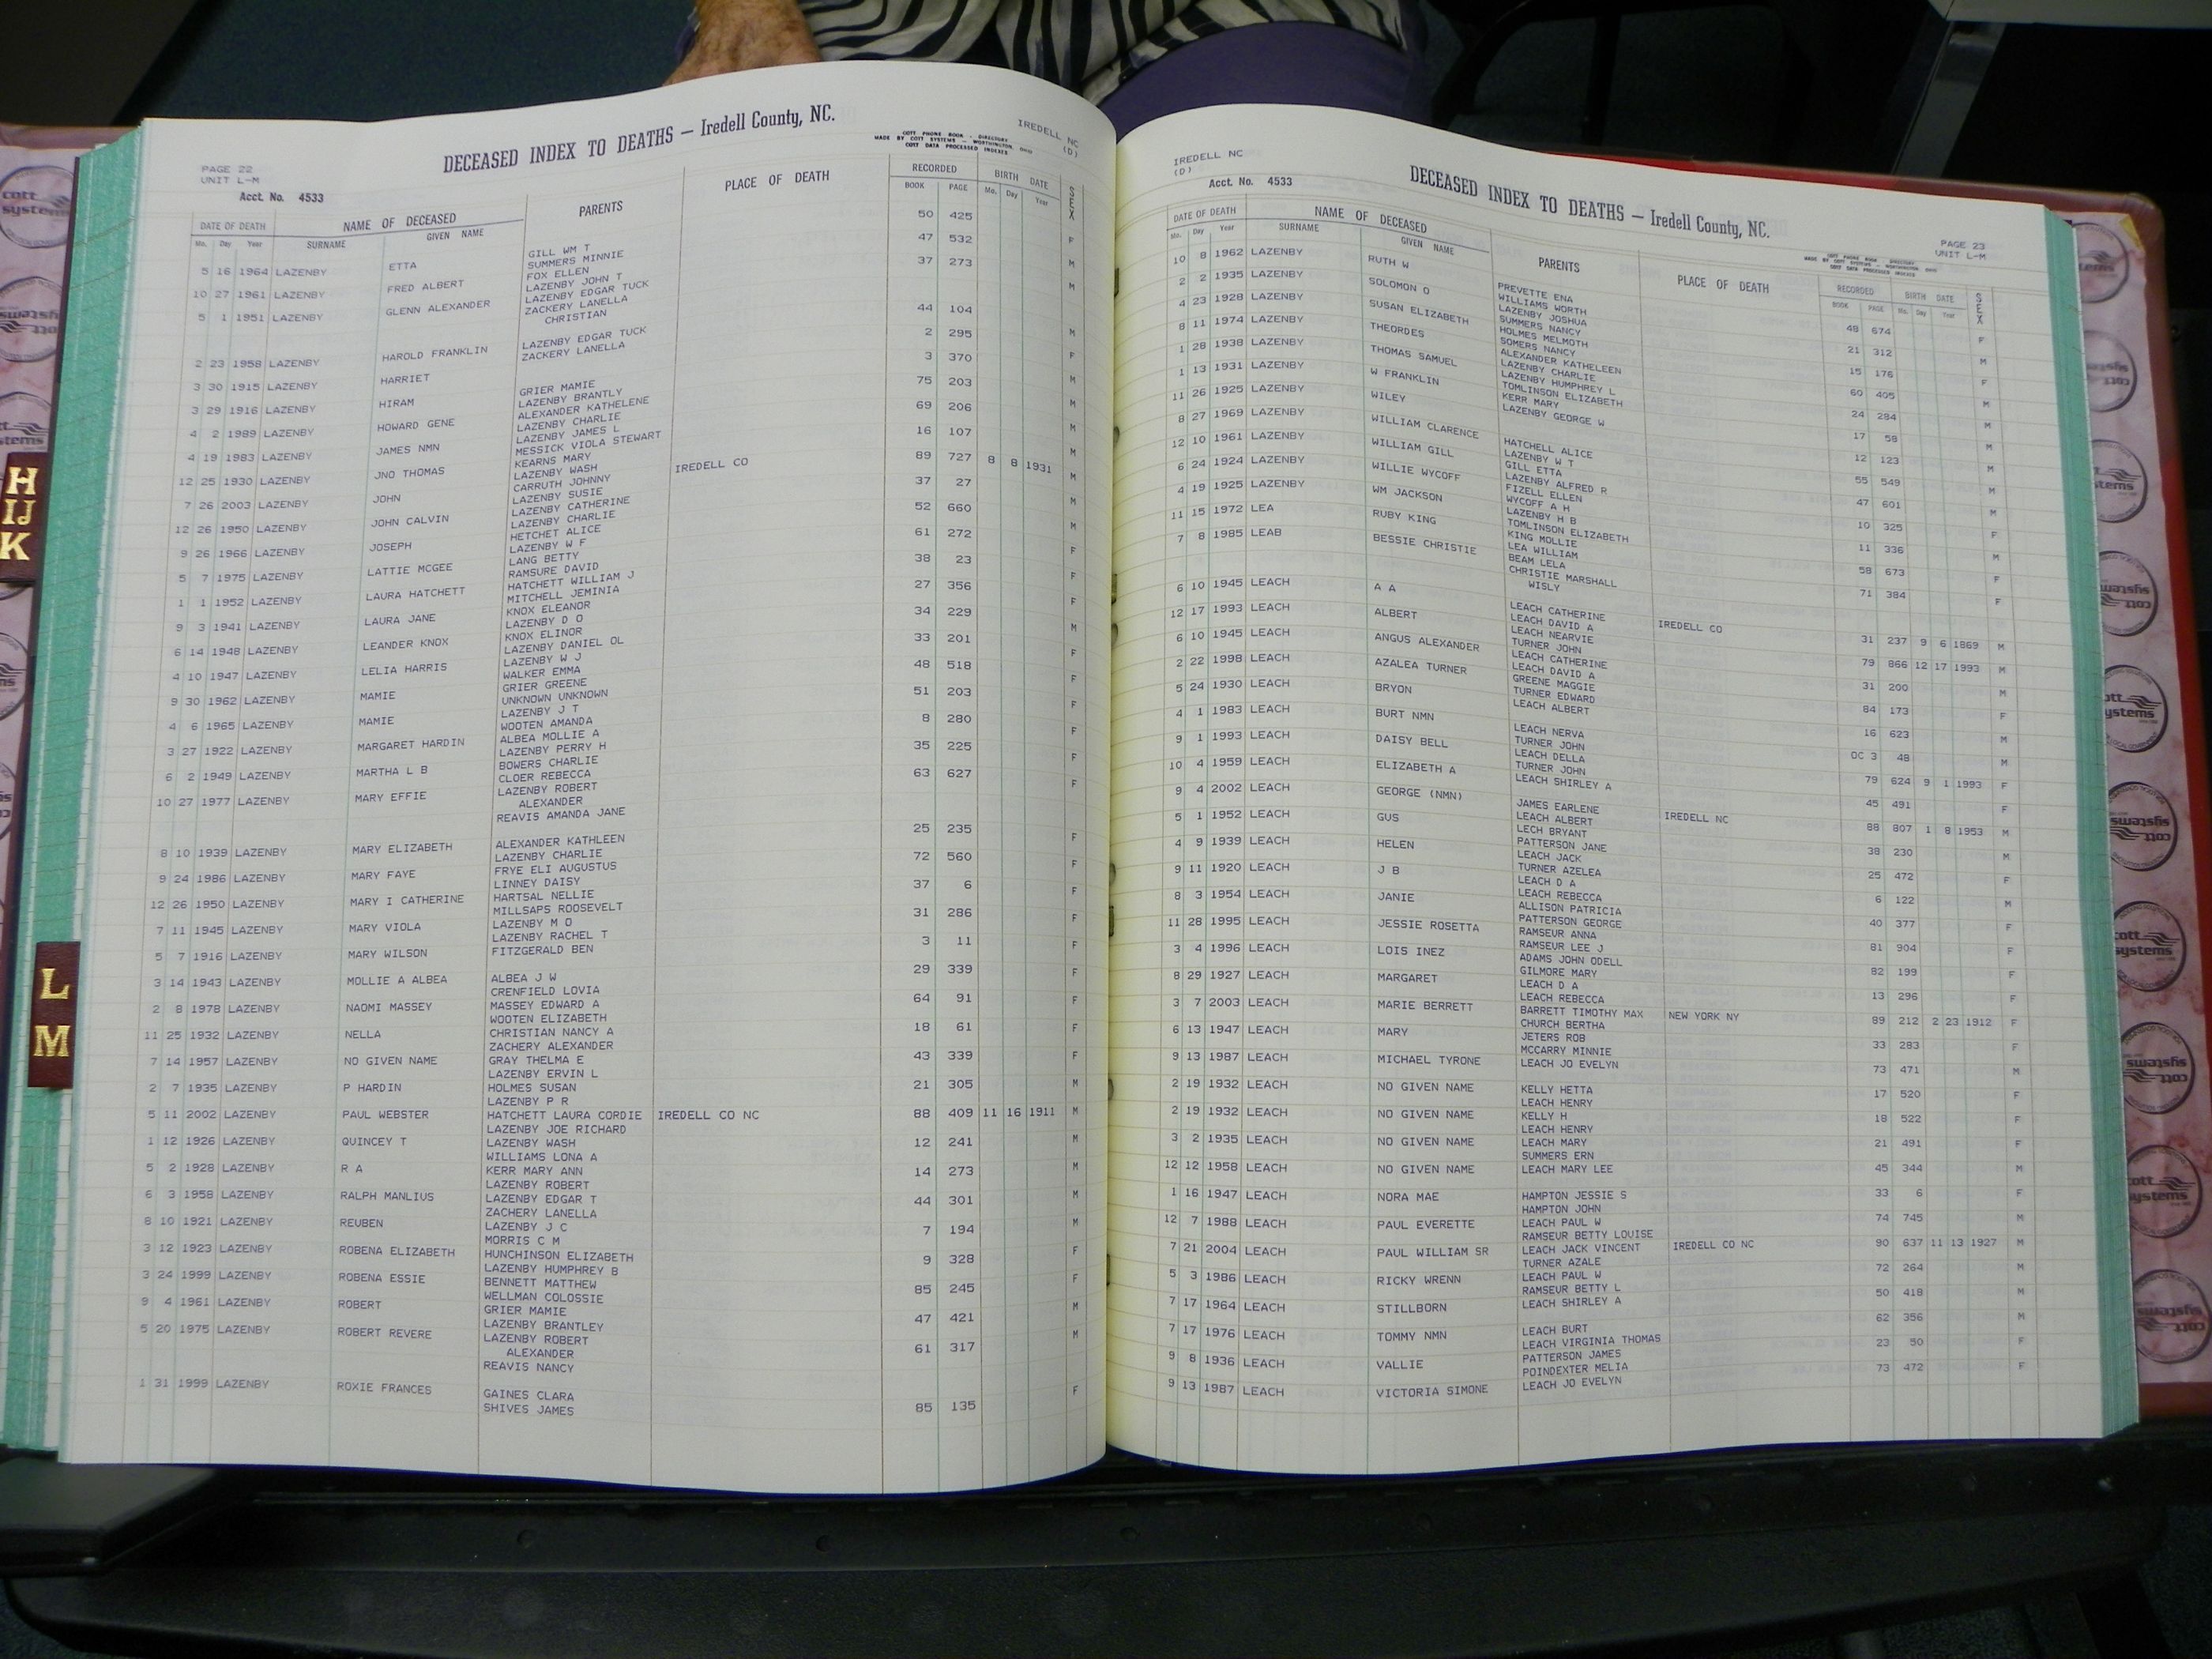 DECEASED INDEX TO DEATHS — Iredell County, NC.
COTT PHONE BOOK - DIRECTORY
MADE BY COTT SYSTEMS — WORTHINGTON, OHIO
COTT DATA PROCESSED INDEXES
IREDELL NC
(D)
PAGE 22
UNIT L-M
Acct. No. 4533
DATE OF DEATH NAME OF DECEASED PARENTS PLACE OF DEATH RECORDED BIRTH DATE SEX
Mo. Day Year SURNAME GIVEN NAME BOOK PAGE Mo. Day Year
5 16 1964 LAZENBY ETTA GILL WM T 50 425 F
SUMMERS MINNIE
10 27 1961 LAZENBY FRED ALBERT FOX ELLEN 47 532 M
LAZENBY JOHN T
5 1 1951 LAZENBY GLENN ALEXANDER LAZENBY EDGAR TUCK 37 273 M
ZACKERY LANELLA
CHRISTIAN
2 23 1958 LAZENBY HAROLD FRANKLIN LAZENBY EDGAR TUCK 44 104 M
ZACKERY LANELLA
3 30 1915 LAZENBY HARRIET 2 295 F
3 29 1916 LAZENBY HIRAM GRIER MAMIE 3 370 M
LAZENBY BRANTLY
4 2 1989 LAZENBY HOWARD GENE ALEXANDER KATHELENE 75 203 M
LAZENBY CHARLIE
4 19 1983 LAZENBY JAMES NMN LAZENBY JAMES L 69 206 M
MESSICK VIOLA STEWART
12 25 1930 LAZENBY JNO THOMAS KEARNS MARY 16 107 M
LAZENBY WASH
7 26 2003 LAZENBY JOHN CARRUTH JOHNNY IREDELL CO 89 727 8 8 1931 M
LAZENBY SUSIE
12 26 1950 LAZENBY JOHN CALVIN LAZENBY CATHERINE 37 27 M
LAZENBY CHARLIE
9 26 1966 LAZENBY JOSEPH HETCHET ALICE 52 660 M
LAZENBY W F
5 7 1975 LAZENBY LATTIE MCGEE LANG BETTY 61 272 F
RAMSURE DAVID
1 1 1952 LAZENBY LAURA HATCHETT HATCHETT WILLIAM J 38 23 F
MITCHELL JEMINIA
9 3 1941 LAZENBY LAURA JANE KNOX ELEANOR 27 356 F
LAZENBY D O
6 14 1948 LAZENBY LEANDER KNOX KNOX ELINOR 34 229 M
LAZENBY DANIEL OL
4 10 1947 LAZENBY LELIA HARRIS LAZENBY W J 33 201 F
WALKER EMMA
9 30 1962 LAZENBY MAMIE GRIER GREENE 48 518 F
UNKNOWN UNKNOWN
4 6 1965 LAZENBY MAMIE LAZENBY J T 51 203 F
WOOTEN AMANDA
3 27 1922 LAZENBY MARGARET HARDIN ALBEA MOLLIE A 8 280 F
LAZENBY PERRY H
6 2 1949 LAZENBY MARTHA L B BOWERS CHARLIE 35 225 F
CLOER REBECCA
10 27 1977 LAZENBY MARY EFFIE LAZENBY ROBERT 63 627 F
ALEXANDER
REAVIS AMANDA JANE
8 10 1939 LAZENBY MARY ELIZABETH ALEXANDER KATHLEEN 25 235 F
LAZENBY CHARLIE
9 24 1986 LAZENBY MARY FAYE FRYE ELI AUGUSTUS 72 560 F
LINNEY DAISY
12 26 1950 LAZENBY MARY I CATHERINE HARTSAL NELLIE 37 6 F
MILLSAPS ROOSEVELT
7 11 1945 LAZENBY MARY VIOLA LAZENBY M O 31 286 F
LAZENBY RACHEL T
5 7 1916 LAZENBY MARY WILSON FITZGERALD BEN 3 11 F
3 14 1943 LAZENBY MOLLIE A ALBEA ALBEA J W 29 339 F
CRENFIELD LOVIA
2 8 1978 LAZENBY NAOMI MASSEY MASSEY EDWARD A 64 91 F
WOOTEN ELIZABETH
11 25 1932 LAZENBY NELLA CHRISTIAN NANCY A 18 61 F
ZACHERY ALEXANDER
7 14 1957 LAZENBY NO GIVEN NAME GRAY THELMA E 43 339 F
LAZENBY ERVIN L
2 7 1935 LAZENBY P HARDIN HOLMES SUSAN 21 305 M
LAZENBY P R
5 11 2002 LAZENBY PAUL WEBSTER HATCHETT LAURA CORDIE IREDELL CO NC 88 409 11 16 1911 M
LAZENBY JOE RICHARD
1 12 1926 LAZENBY QUINCEY T LAZENBY WASH 12 241 M
WILLIAMS LONA A
5 2 1928 LAZENBY R A KERR MARY ANN 14 273 M
LAZENBY ROBERT
6 3 1958 LAZENBY RALPH MANLIUS LAZENBY EDGAR T 44 301 M
ZACHERY LANELLA
8 10 1921 LAZENBY REUBEN LAZENBY J C 7 194 M
MORRIS C M
3 12 1923 LAZENBY ROBENA ELIZABETH HUNCHINSON ELIZABETH 9 328 F
LAZENBY HUMPHREY B
3 24 1999 LAZENBY ROBENA ESSIE BENNETT MATTHEW 85 245 F
WELLMAN COLOSSIE
9 4 1961 LAZENBY ROBERT GRIER MAMIE 47 421 M
LAZENBY BRANTLEY
5 20 1975 LAZENBY ROBERT REVERE LAZENBY ROBERT 61 317 M
ALEXANDER
REAVIS NANCY
1 31 1999 LAZENBY ROXIE FRANCES GAINES CLARA 85 135 F
SHIVES JAMES
IREDELL NC
(D)
Acct. No. 4533
DECEASED INDEX TO DEATHS — Iredell County, NC.
PAGE 23
UNIT L-M
COTT PHONE BOOK - DIRECTORY
MADE BY COTT SYSTEMS — WORTHINGTON, OHIO
COTT DATA PROCESSED INDEXES
DATE OF DEATH NAME OF DECEASED PARENTS PLACE OF DEATH RECORDED BIRTH DATE SEX
Mo. Day Year SURNAME GIVEN NAME BOOK PAGE Mo. Day Year
10 8 1962 LAZENBY RUTH W PREVETTE ENA 48 674 F
WILLIAMS WORTH
2 2 1935 LAZENBY SOLOMON O LAZENBY JOSHUA 21 312 M
SUMMERS NANCY
4 23 1928 LAZENBY SUSAN ELIZABETH HOLMES MELMOTH 15 176 F
SOMERS NANCY
8 11 1974 LAZENBY THEORDES ALEXANDER KATHELEEN 60 405 M
LAZENBY CHARLIE
1 28 1938 LAZENBY THOMAS SAMUEL LAZENBY HUMPHREY L 24 284 M
TOMLINSON ELIZABETH
1 13 1931 LAZENBY W FRANKLIN KERR MARY 17 58 M
LAZENBY GEORGE W
11 26 1925 LAZENBY WILEY 12 123 M
8 27 1969 LAZENBY WILLIAM CLARENCE HATCHELL ALICE 55 549 M
LAZENBY W T
12 10 1961 LAZENBY WILLIAM GILL GILL ETTA 47 601 M
LAZENBY ALFRED R
6 24 1924 LAZENBY WILLIE WYCOFF FIZELL ELLEN 10 325 F
WYCOFF A H
4 19 1925 LAZENBY WM JACKSON LAZENBY H B 11 336 M
TOMLINSON ELIZABETH
11 15 1972 LEA RUBY KING KING MOLLIE 58 673 F
LEA WILLIAM
7 8 1985 LEAB BESSIE CHRISTIE BEAM LELA 71 384 F
CHRISTIE MARSHALL
WISLY
6 10 1945 LEACH A A LEACH CATHERINE 31 237 9 6 1869 M
LEACH DAVID A
12 17 1993 LEACH ALBERT LEACH NEARVIE IREDELL CO 79 866 12 17 1993 M
TURNER JOHN
6 10 1945 LEACH ANGUS ALEXANDER LEACH CATHERINE 31 200 M
LEACH DAVID A
2 22 1998 LEACH AZALEA TURNER GREENE MAGGIE 84 173 F
TURNER EDWARD
5 24 1930 LEACH BRYON LEACH ALBERT 16 623 M
4 1 1983 LEACH BURT NMN LEACH NERVA OC 3 48 M
TURNER JOHN
9 1 1993 LEACH DAISY BELL LEACH DELLA 79 624 9 1 1993 F
TURNER JOHN
10 4 1959 LEACH ELIZABETH A LEACH SHIRLEY A 45 491 F
9 4 2002 LEACH GEORGE (NMN) JAMES EARLENE IREDELL NC 88 807 1 8 1953 M
LEACH ALBERT
5 1 1952 LEACH GUS LECH BRYANT 38 230 M
PATTERSON JANE
4 9 1939 LEACH HELEN LEACH JACK 25 472 F
TURNER AZELEA
9 11 1920 LEACH J B LEACH D A 6 122 M
LEACH REBECCA
8 3 1954 LEACH JANIE ALLISON PATRICIA 40 377 F
PATTERSON GEORGE
11 28 1995 LEACH JESSIE ROSETTA RAMSEUR ANNA 81 904 F
RAMSEUR LEE J
3 4 1996 LEACH LOIS INEZ ADAMS JOHN ODELL 82 199 F
GILMORE MARY
8 29 1927 LEACH MARGARET LEACH D A 13 296 F
LEACH REBECCA
3 7 2003 LEACH MARIE BERRETT BARRETT TIMOTHY MAX NEW YORK NY 89 212 2 23 1912 F
CHURCH BERTHA
6 13 1947 LEACH MARY JETERS ROB 33 283 F
MCCARRY MINNIE
9 13 1987 LEACH MICHAEL TYRONE LEACH JO EVELYN 73 471 M
2 19 1932 LEACH NO GIVEN NAME KELLY HETTA 17 520 F
LEACH HENRY
2 19 1932 LEACH NO GIVEN NAME KELLY H 18 522 F
LEACH HENRY
3 2 1935 LEACH NO GIVEN NAME LEACH MARY 21 491 F
SUMMERS ERN
12 12 1958 LEACH NO GIVEN NAME LEACH MARY LEE 45 344 M
1 16 1947 LEACH NORA MAE HAMPTON JESSIE S 33 6 F
HAMPTON JOHN
12 7 1988 LEACH PAUL EVERETTE LEACH PAUL W 74 745 M
RAMSEUR BETTY LOUISE
7 21 2004 LEACH PAUL WILLIAM SR LEACH JACK VINCENT IREDELL CO NC 90 637 11 13 1927 M
TURNER AZALE
5 3 1986 LEACH RICKY WRENN LEACH PAUL W 72 264 M
RAMSEUR BETTY L
7 17 1964 LEACH STILLBORN LEACH SHIRLEY A 50 418 M
7 17 1976 LEACH TOMMY NMN LEACH BURT 62 356 M
LEACH VIRGINIA THOMAS
9 8 1936 LEACH VALLIE PATTERSON JAMES 23 50 F
POINDEXTER MELIA
9 13 1987 LEACH VICTORIA SIMONE LEACH JO EVELYN 73 472 F
H
IJ
K
L
M
cott
systems